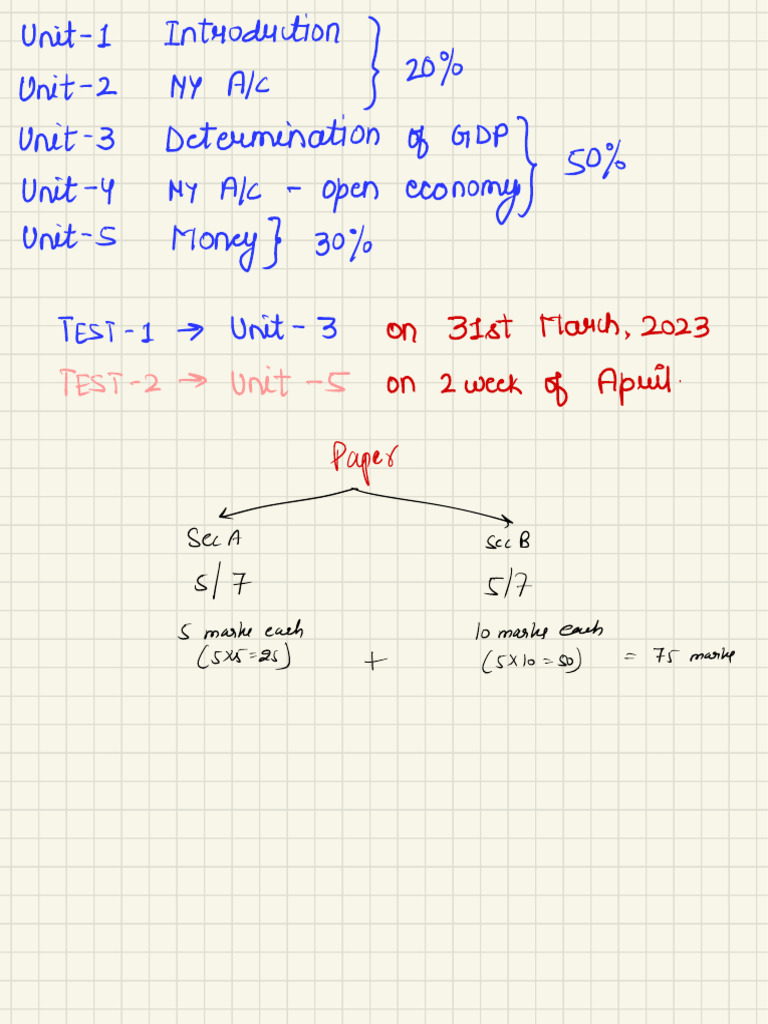 Unit-1 Introduction
Unit-2 NY A/C
20%
Unit-3 Determination of GDP
Unit-4 NY A/C - open economy
50%
Unit-5 Money 30%
TEST-1 → Unit-3 on 31st March, 2023
TEST-2 → Unit-5 on 2 week of April.
Paper
Sec A Sec B
5/7 5/7
5 marks each 10 marks each
(5x5=25) + (5x10=50) = 75 marks